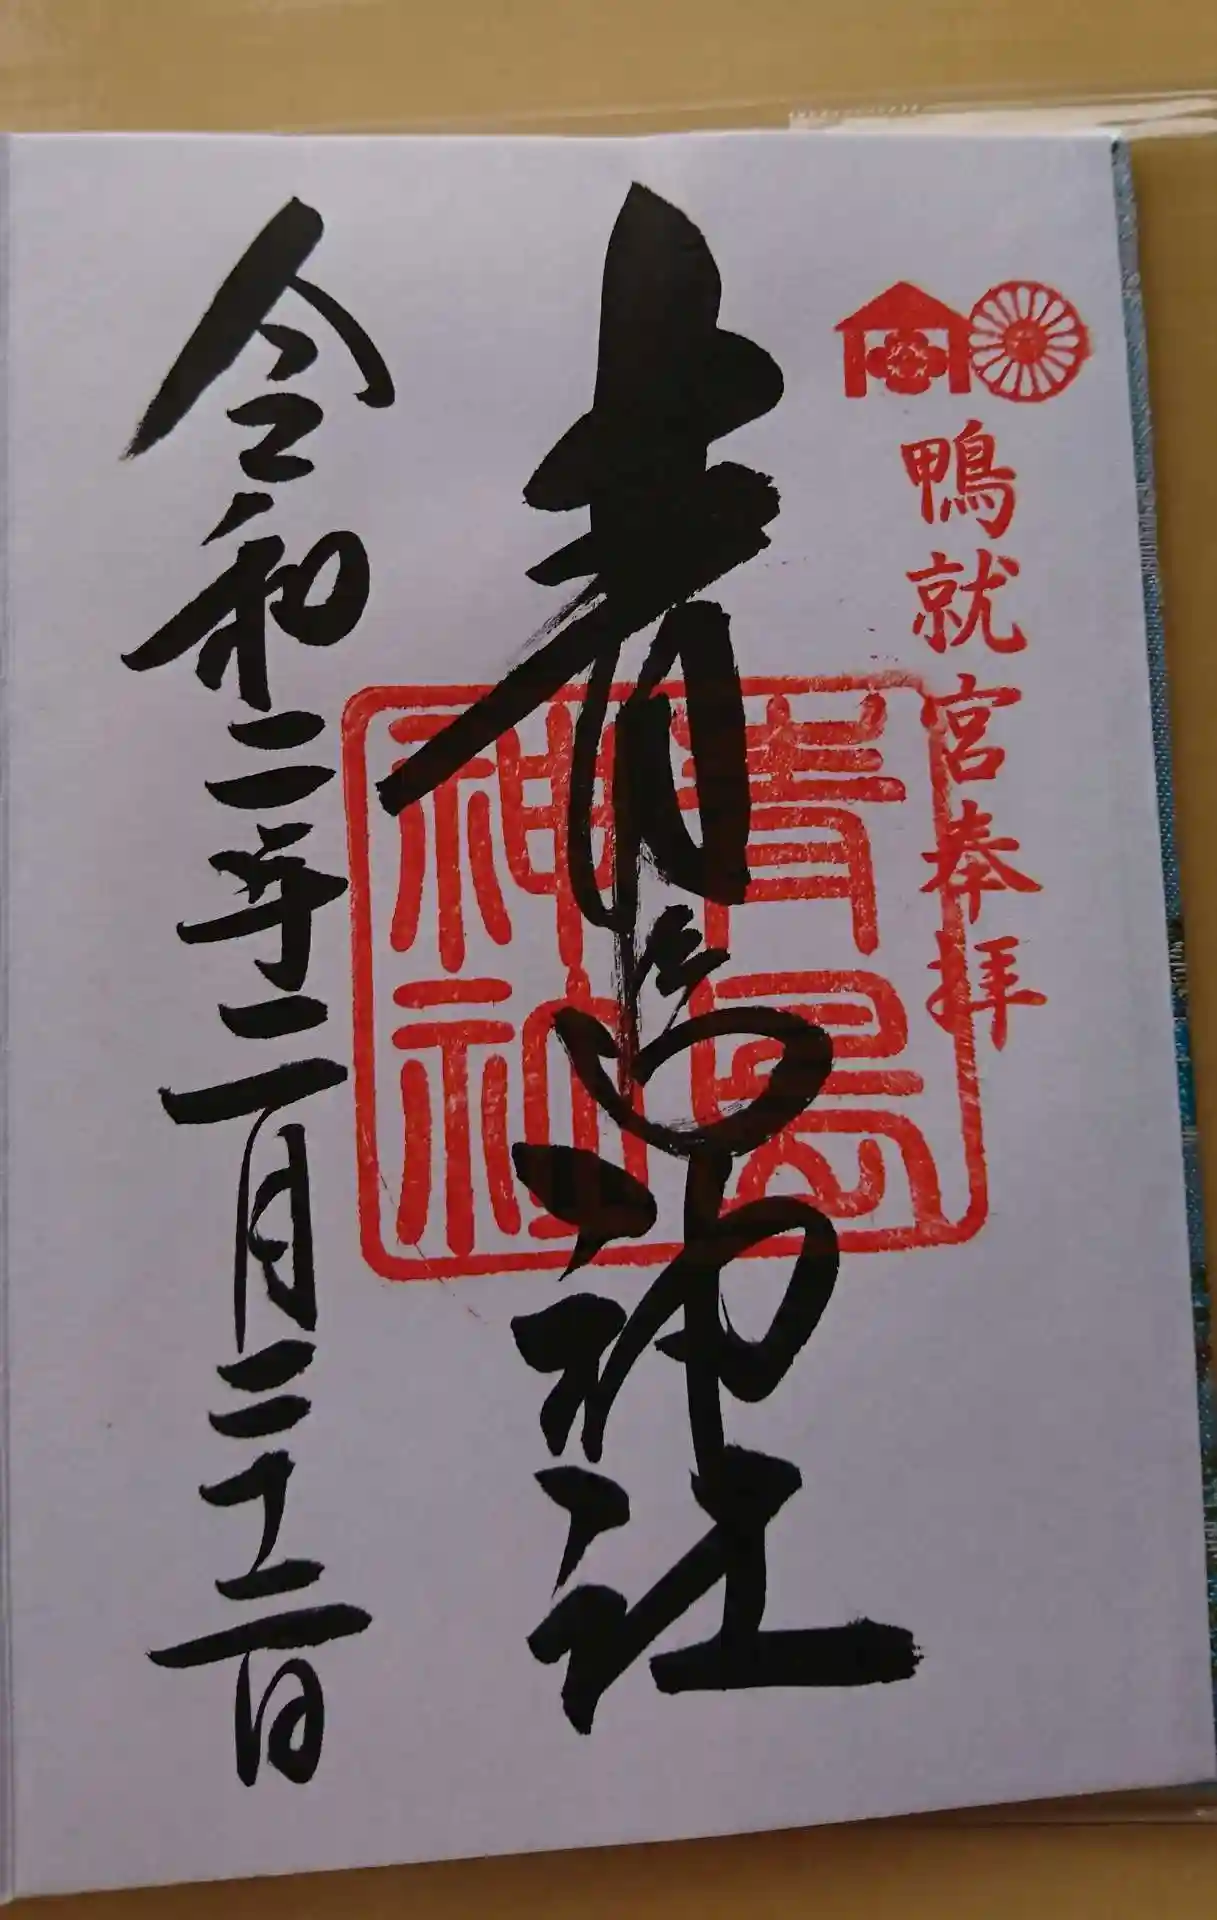 鴨就宮奉拝
青島神社
青島
神社
令和二年二月二十二日